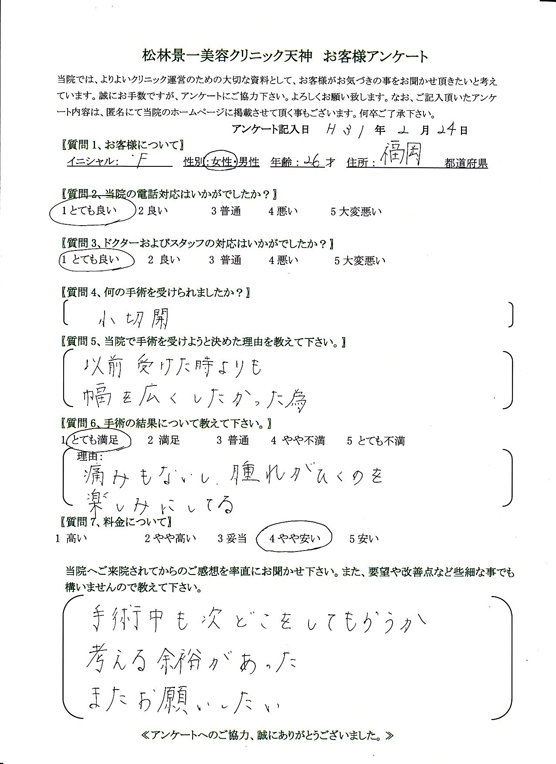 松林景一美容クリニック天神 お客様アンケート
当院では、よりよいクリニック運営のための大切な資料として、お客様がお気づきの事をお聞かせ頂きたいと考え
ています。誠にお手数ですが、アンケートにご協力下さい。よろしくお願い致します。なお、ご記入頂いたアンケ
ート内容は、匿名にて当院のホームページに掲載させて頂く事もございます。何卒ご了承下さい。
アンケート記入日 H31 年 2 月 24 日
〖質問1、お客様について〗
イニシャル: F 性別:女性・男性 年齢:26才 住所: 福岡 都道府県
〖質問2、当院の電話対応はいかがでしたか?〗
1 とても良い 2 良い 3 普通 4 悪い 5 大変悪い
〖質問3、ドクターおよびスタッフの対応はいかがでしたか?〗
1 とても良い 2 良い 3 普通 4 悪い 5 大変悪い
〖質問4、何の手術を受けられましたか?〗
小切開
〖質問5、当院で手術を受けようと決めた理由を教えて下さい。〗
以前受けた時よりも
幅を広くしたかった為
〖質問6、手術の結果について教えて下さい。〗
1 とても満足 2 満足 3 普通 4 やや不満 5 とても不満
理由:
痛みもないし、腫れがひくのを
楽しみにしてる
〖質問7、料金について〗
1 高い 2 やや高い 3 妥当 4 やや安い 5 安い
当院へご来院されてからのご感想を率直にお聞かせ下さい。また、要望や改善点など些細な事でも
構いませんので教えて下さい。
手術中も次どこをしてもらうか
考える余裕があった
またお願いしたい
≪アンケートへのご協力、誠にありがとうございました。≫